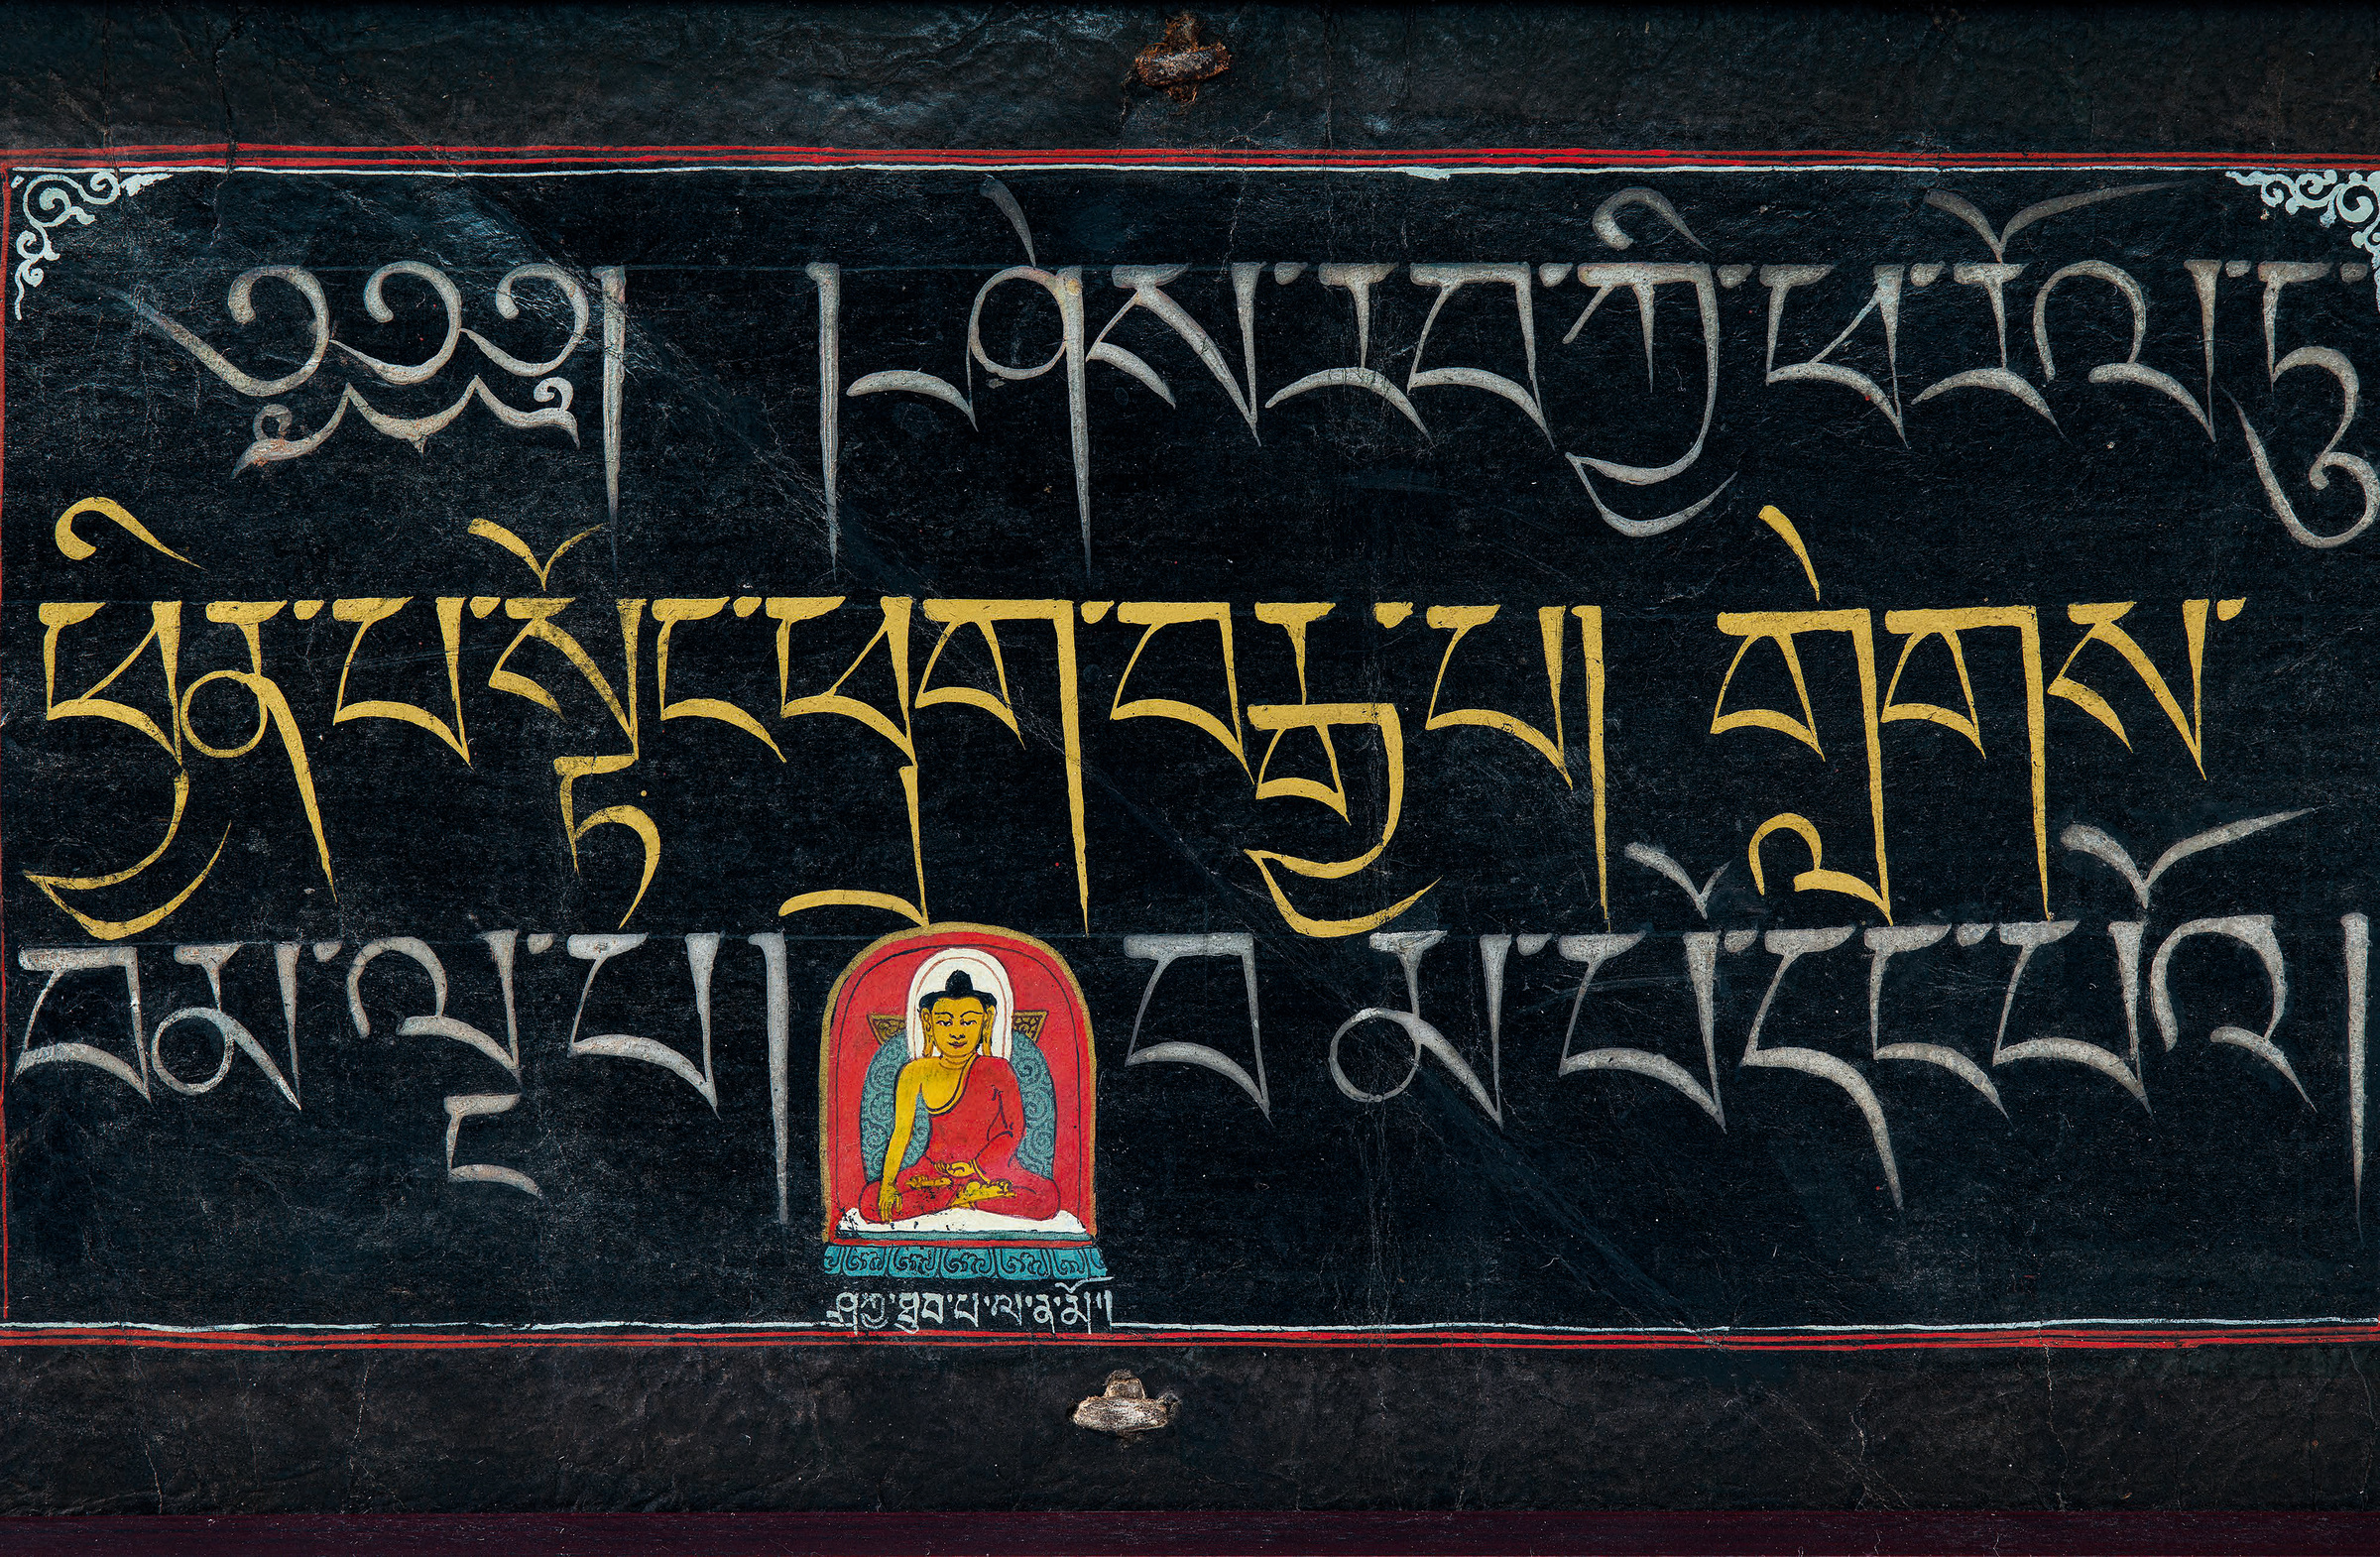 ༄༅༅། །ཤེས་རབ་ཀྱི་ཕ་རོལ་ཏུ་
ཕྱིན་པ་སྟོང་ཕྲག་བརྒྱ་པ། གླེགས་
བམ་ལྔ་པ། བམ་པོ་དང་པོའ།
ཤཀྱ་ཐུབ་པ་ལ་ན་མོ།